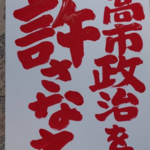 高市政治を
許さな